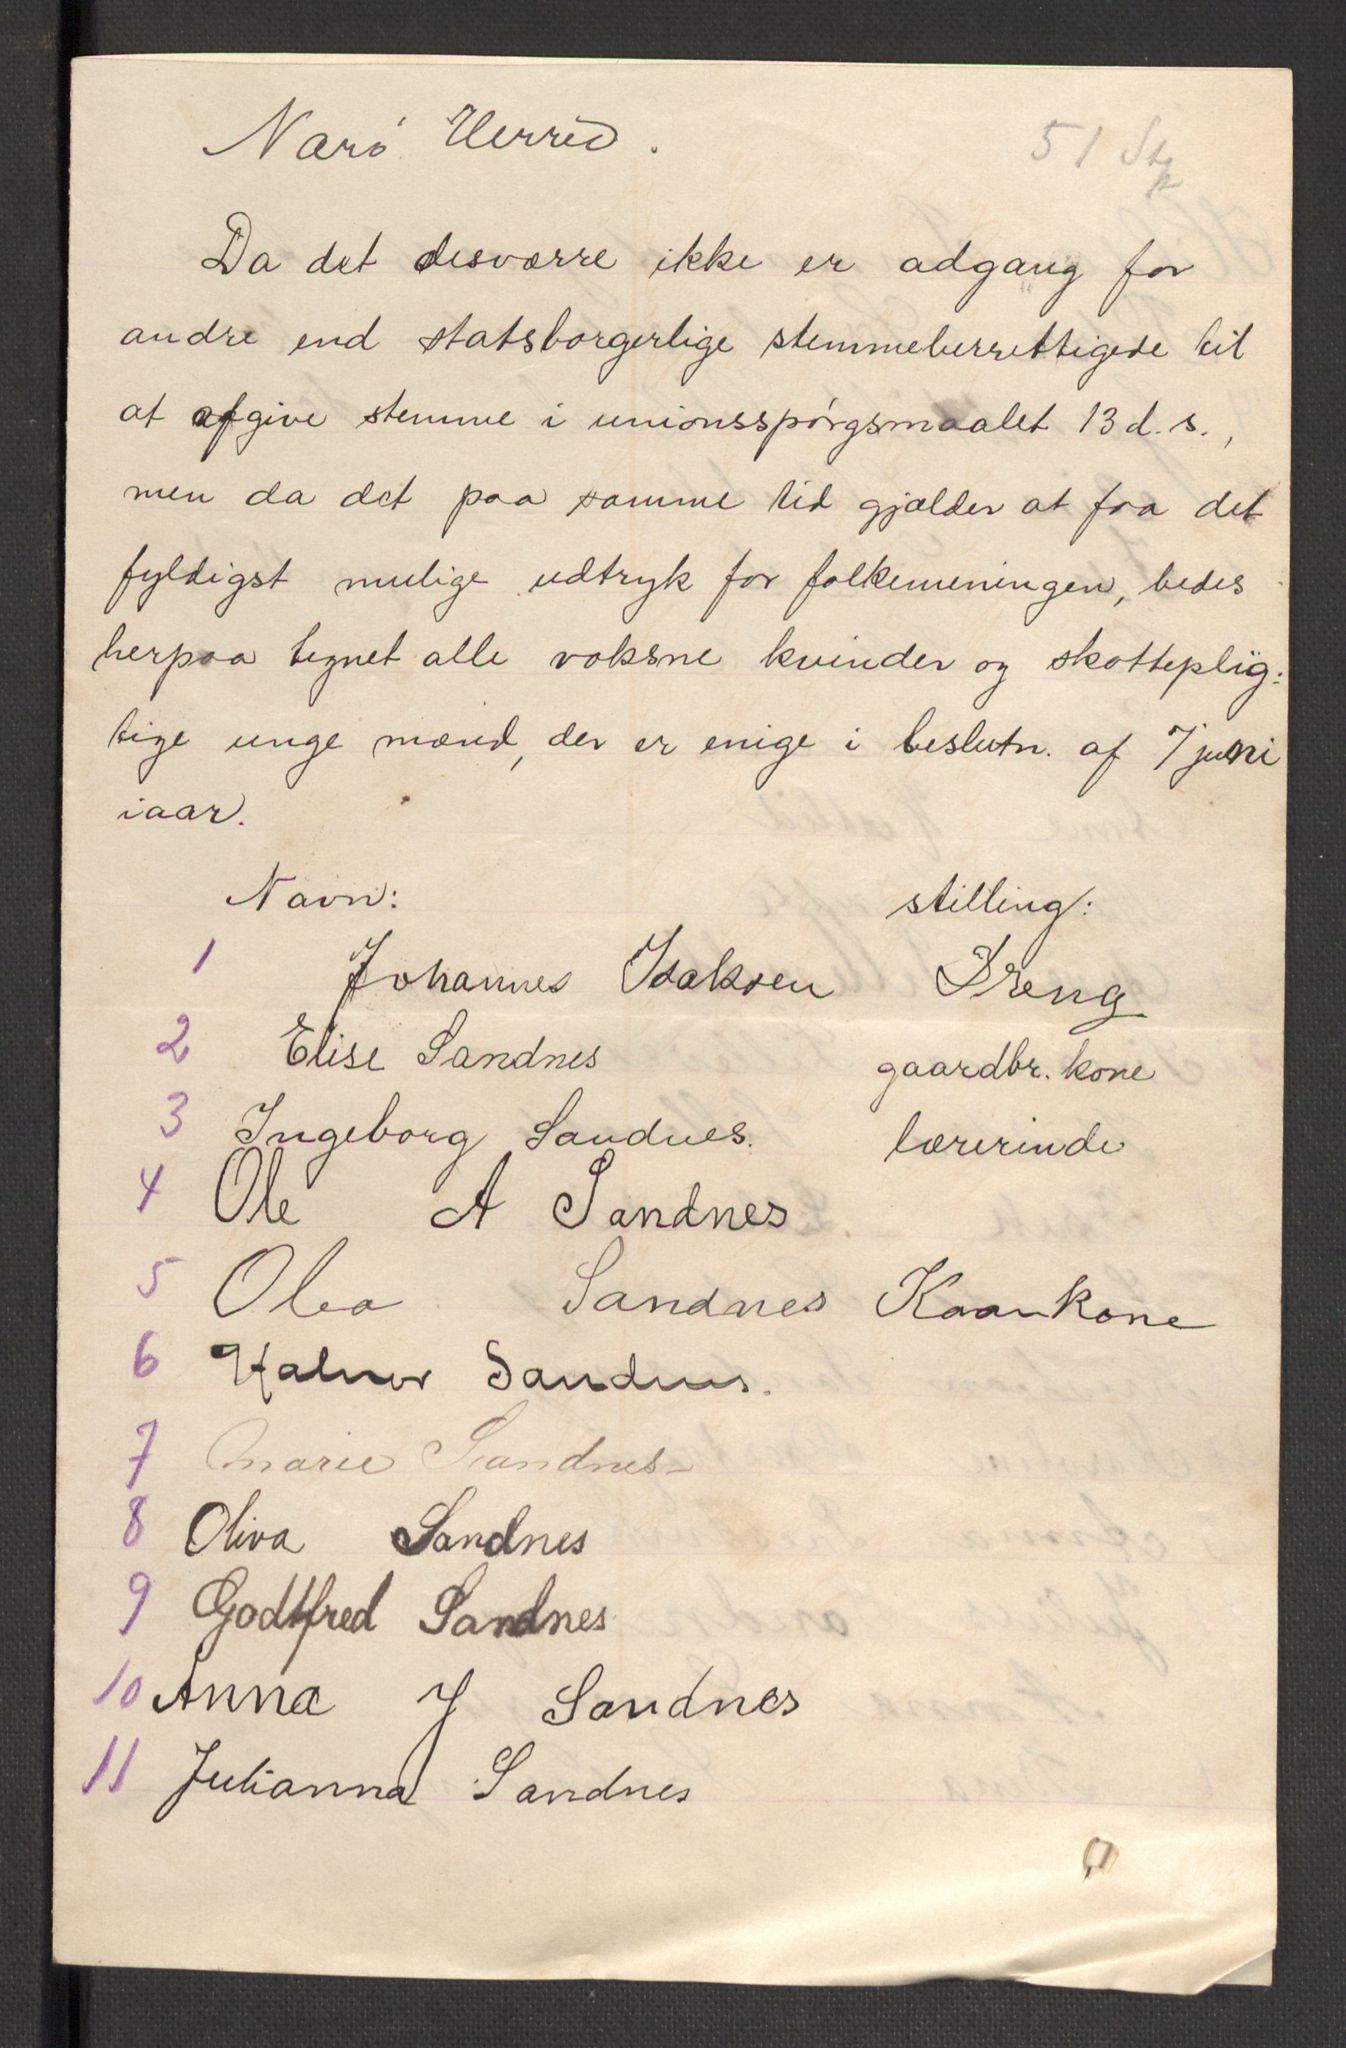 Narö Herred.
51 Stk
Da det desværre ikke er adgang for
andre end statsborgerlige stemmeberrettigede til
at afgive stemme i unionsspórgsmaalet 13 d. s.,
men da det paa samme tid gjælder at faa det
fyldigst mulige udtryk for folkemeningen, bedes
herpaa tegnet alle voksne kvinder og skatteplig:
tige unge mænd, der er enige i beslutn. af 7 juni
iaar.
Navn: stilling:
1 Johannes Isaksen Dreng
2 Elise Sandnes gaardbr. kone
3 Ingeborg Sandnes. lærerinde
4 Ole A Sandnes
5 Olea Sandnes Kaarkone
6 Halvor Sandnes.
7 Marie Sandnes
8 Oliva Sandnes
9 Godtfred Sandnes
10 Anna J Sandnes
11 Julianna Sandnes